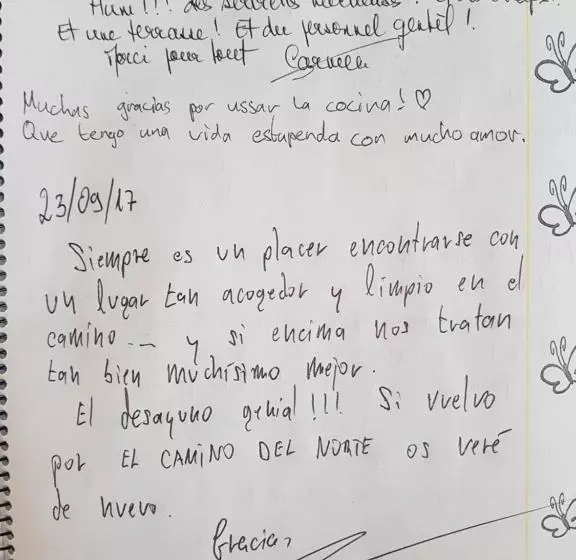 Hum !!! des
Et une terrasse ! Et du personnel gentil !
Merci pour tout
Muchas gracias por ussar la cocina! ♡
Que tengo una vida estupenda con mucho amor.
23/09/17
Siempre es un placer encontrarse con
un lugar tan acogedor y limpio en el
camino... y si encima nos tratan
tan bien muchísimo mejor.
El desayuno genial!!! Si vuelvo
por EL CAMINO DEL NORTE os veré
de nuevo.
Gracias